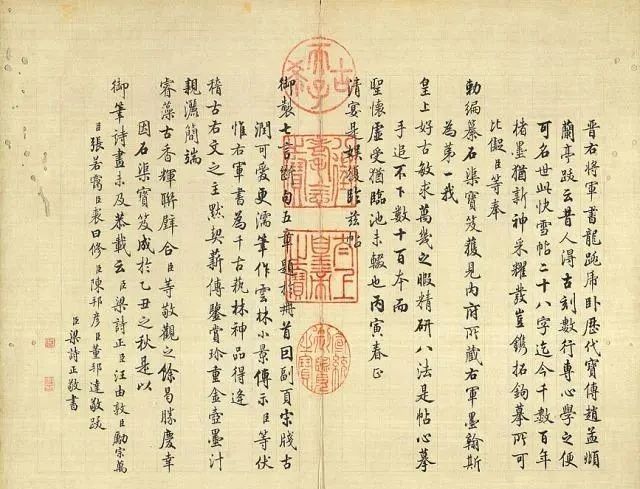 晉右將軍書龍跳虎卧歷代寶傳趙孟頫
蘭亭跋云昔人得古刻數行專心學之便
可名世此快雪帖二十八字迄今千數百年
楮墨猶新神采耀發豈鐫拓鈎摹所可
比儗臣等奉
勅編纂石渠寶笈獲見內府所藏右軍墨翰斯
為第一我
皇上好古敏求萬幾之暇精研八法是帖心摹
手追不下數十百本而
聖懷虛受猶臨池未輟也丙寅春正
清宴是娛復臨茲帖
御製七言斷句五章題於冊首因副頁宋牋古
潤可愛更濡筆作雲林小景傳示臣等伏
惟右軍書為千古藝林神品得逢
稽古右文之主默契薪傳鑒賞珍重金壺墨汁
親灑簡端
睿藻古香輝聯璧合臣等敬觀之餘曷勝慶幸
因石渠寶笈成於乙丑之秋是以
御筆詩畫未及恭載云臣梁詩正臣汪由敦臣勵宗萬
臣張若靄臣裘曰修臣陳邦彥臣董邦達敬跋
臣梁詩正敬書
古希天子
太上皇帝之寶
宣統御覽之寶